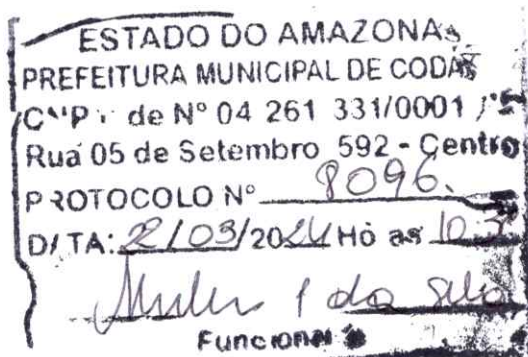 ESTADO DO AMAZONAS
PREFEITURA MUNICIPAL DE CODAJÁS
de Nº 04 261 331/0001
Rua 05 de Setembro 592 - Centro
PROTOCOLO Nº 8096.
DATA: 22/03/2024 Ho as 10
da Silva
Funcional